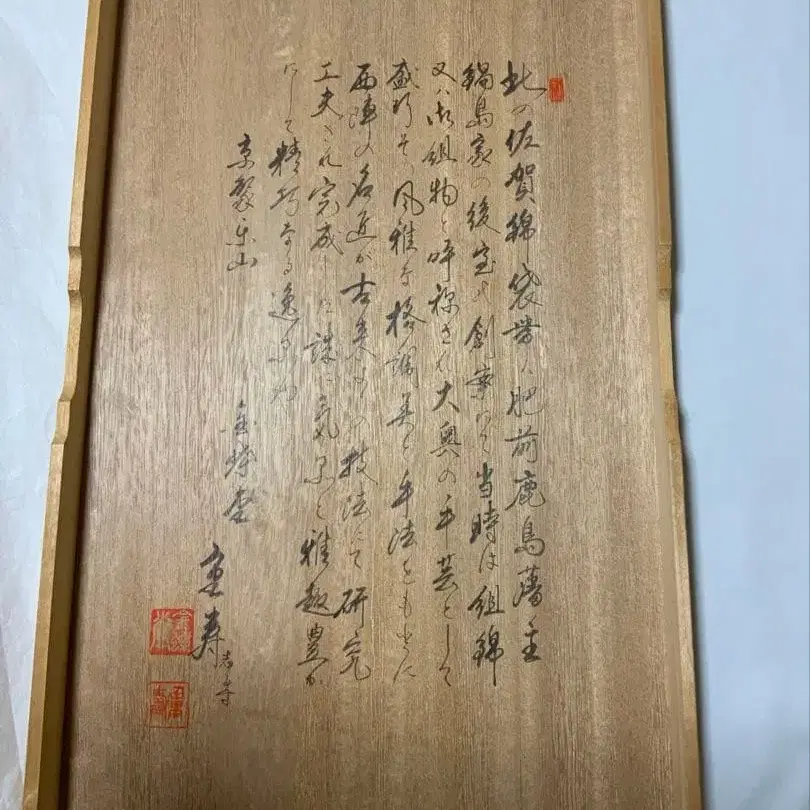 此の佐賀錦袋帯は肥前鹿島藩主
鍋島家の後室の創案にて当時は組錦
又は御組物と呼称され大奥の手芸として
盛行そ風雅な格調美と手法をもとに
西陣の名匠が古来よりの技法にて研究
工夫され完成した誠に気品と雅趣豊か
にして精巧なる逸品也
京 山
堂
寿